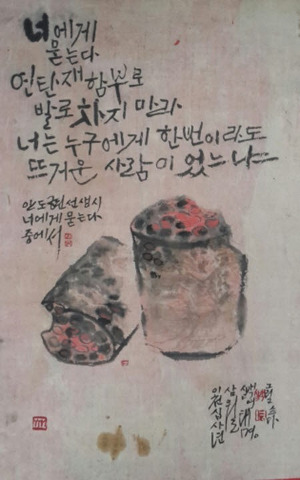 너에게
묻는다
연탄재 함부로
발로 차지 마라
너는 누구에게 한번이라도
뜨거운 사람이 었느냐
안도현 선생 시
너에게 묻는다
중에서
이천십사년